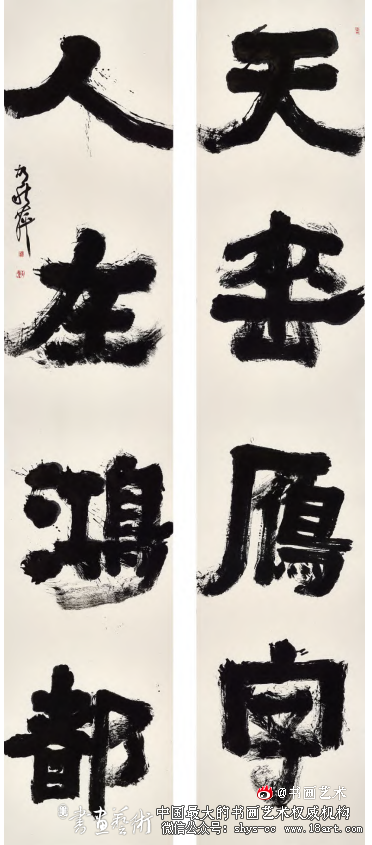 天垂鴈字
人在鴻都
@书画艺术
書画藝術
中国最大的书画艺术权威机构
微信公众号: shys-cc www.18art.com